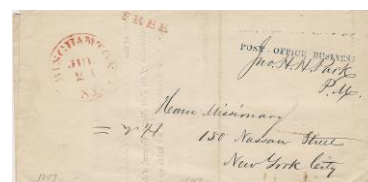 FREE
BINGHAMTON
N.Y.
POST OFFICE BUSINESS
Jno. H. H. Park
P.M.
Home Missionary
150 Nassau Street
New York City